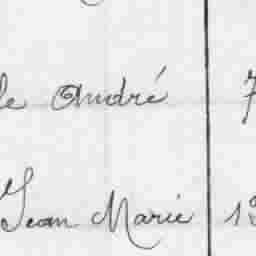 le André 7
Jean Marie 13